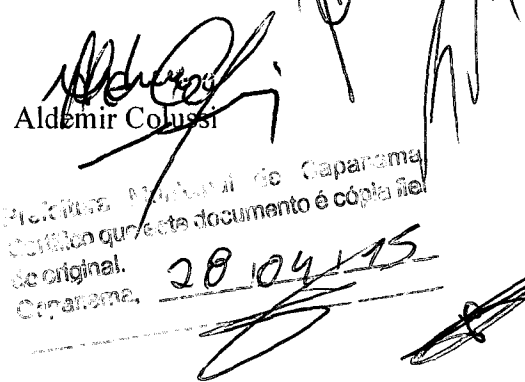 Aldemir Colussi
Prefeitura Municipal de Capanema
Certifico que este documento é cópia fiel
do original.
Capanema, 28/04/15